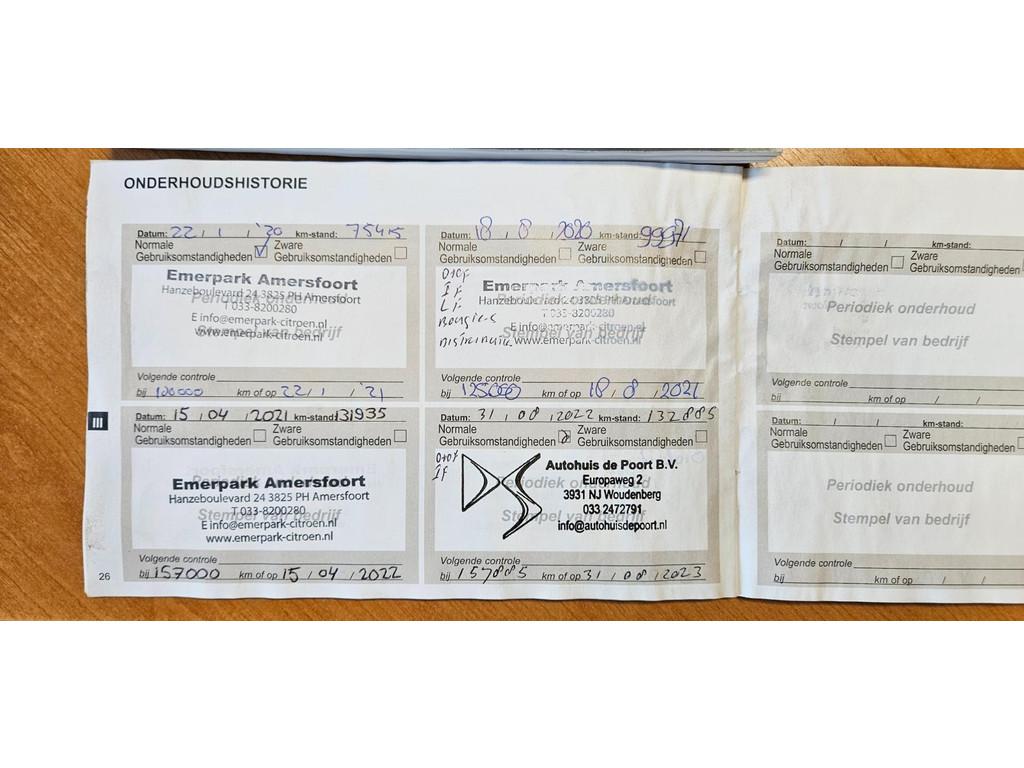 ONDERHOUDSHISTORIE
Datum: 22 / 1 / '20 km-stand: 75415
Normale
Gebruiksomstandigheden
Zware
Gebruiksomstandigheden
Emerpark Amersfoort
Hanzeboulevard 24 3825 PH Amersfoort
Periodiek onderhoud
T 033-8200280
E info@emerpark-citroen.nl
Stempel van bedrijf
www.emerpark-citroen.nl
Volgende controle
bij 100000 km of op 22 / 1 / '21
Datum: 18 / 8 / 2020 km-stand: 99971
Normale
Gebruiksomstandigheden
Zware
Gebruiksomstandigheden
I F
Bougies
Emerpark Amersfoort
Hanzeboulevard 24 3825 PH Amersfoort
Periodiek onderhoud
T 033-8200280
E info@emerpark-citroen.nl
Stempel van bedrijf
www.emerpark-citroen.nl
Volgende controle
bij 125000 km of op 18 / 8 / 2021
Datum: 15 / 04 / 2021 km-stand: 131935
Normale
Gebruiksomstandigheden
Zware
Gebruiksomstandigheden
Emerpark Amersfoort
Periodiek onderhoud
Hanzeboulevard 24 3825 PH Amersfoort
T 033-8200280
E info@emerpark-citroen.nl
Stempel van bedrijf
www.emerpark-citroen.nl
Volgende controle
bij 157000 km of op 15 / 04 / 2022
Datum: 31 / 08 / 2022 km-stand: 132885
Normale
Gebruiksomstandigheden
Zware
Gebruiksomstandigheden
IF
DS
Autohuis de Poort B.V.
Europaweg 2
Periodiek onderhoud
3931 NJ Woudenberg
033 2472791
Stempel van bedrijf
info@autohuisdepoort.nl
Volgende controle
bij 157885 km of op 31 / 08 / 2023
III
26
Datum: / / km-stand:
Normale
Gebruiksomstandigheden
Zware
Gebruiksomstandigheden
Periodiek onderhoud
Stempel van bedrijf
Volgende controle
bij km of op / /
Datum: / / km-stand:
Normale
Gebruiksomstandigheden
Zware
Gebruiksomstandigheden
Periodiek onderhoud
Stempel van bedrijf
Volgende controle
bij km of op / /